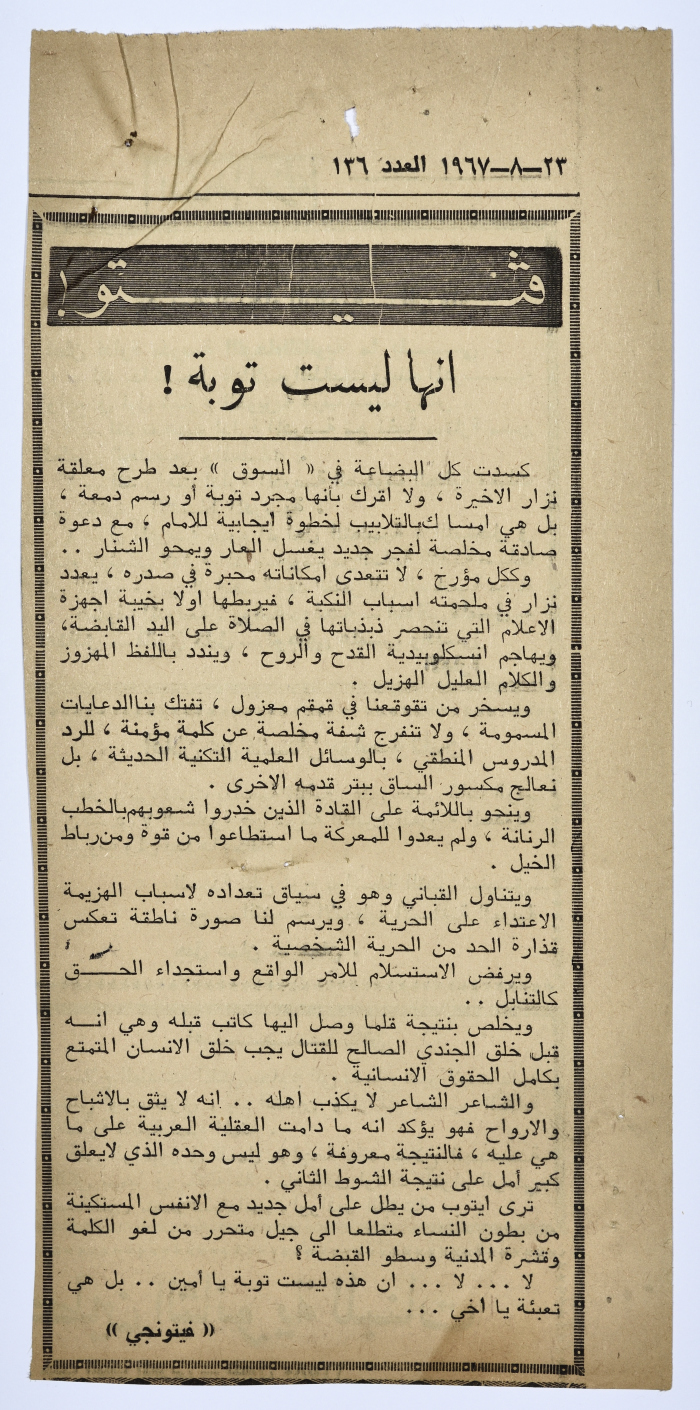 ٢٣–٨–١٩٦٧ العدد ١٣٦
ڤيتو !
انها ليست توبة !
كسدت كل البضاعة في « السوق » بعد طرح معلقة
نزار الاخيرة ، ولا اقرك بأنها مجرد توبة أو رسم دمعة ،
بل هي امسا ك بالتلابيب لخطوة ايجابية للامام ، مع دعوة
صادقة مخلصة لفجر جديد يغسل العار ويمحو الشنار ..
وككل مؤرخ ، لا تتعدى امكاناته محبرة في صدره ، يعدد
نزار في ملحمته اسباب النكبة ، فيربطها اولا بخيبة اجهزة
الاعلام التي تنحصر ذبذباتها في الصلاة على اليد القابضة،
ويهاجم انسكلوبيدية القدح والروح ، ويندد باللفظ المهزوز
والكلام العليل الهزيل .
ويسخر من تقوقعنا في قمقم معزول ، تفتك بنا الدعايات
المسمومة ، ولا تنفرج شفة مخلصة عن كلمة مؤمنة ، للرد
المدروس المنطقي ، بالوسائل العلمية التكنية الحديثة ، بل
نعالج مكسور الساق ببتر قدمه الاخرى .
وينحو باللائمة على القادة الذين خدروا شعوبهم بالخطب
الرنانة ، ولم يعدوا للمعركة ما استطاعوا من قوة ومن رباط
الخيل .
ويتناول القباني وهو في سياق تعداده لاسباب الهزيمة
الاعتداء على الحرية ، ويرسم لنا صورة ناطقة تعكس
قذارة الحد من الحرية الشخصية .
ويرفض الاستسلام للامر الواقع واستجداء الحـــق
كالتنابل ..
ويخلص بنتيجة قلما وصل اليها كاتب قبله وهي انـــه
قبل خلق الجندي الصالح للقتال يجب خلق الانسان المتمتع
بكامل الحقوق الانسانية .
والشاعر الشاعر لا يكذب اهله .. إنه لا يثق بالاشباح
والارواح فهو يؤكد انه ما دامت العقلية العربية على ما
هي عليه ، فالنتيجة معروفة ، وهو ليس وحده الذي لايعلق
كبير أمل على نتيجة الشوط الثاني .
ترى ايتوب من يطل على أمل جديد مع الانفس المستكينة
من بطون النساء متطلعا الى جيل متحرر من لغو الكلمة
وقشرة المدنية وسطو القبضة ؟
لا ... لا ... ان هذه ليست توبة يا أمين .. بل هي
تعبئة يا اخي ...
(( فيتونجي ))